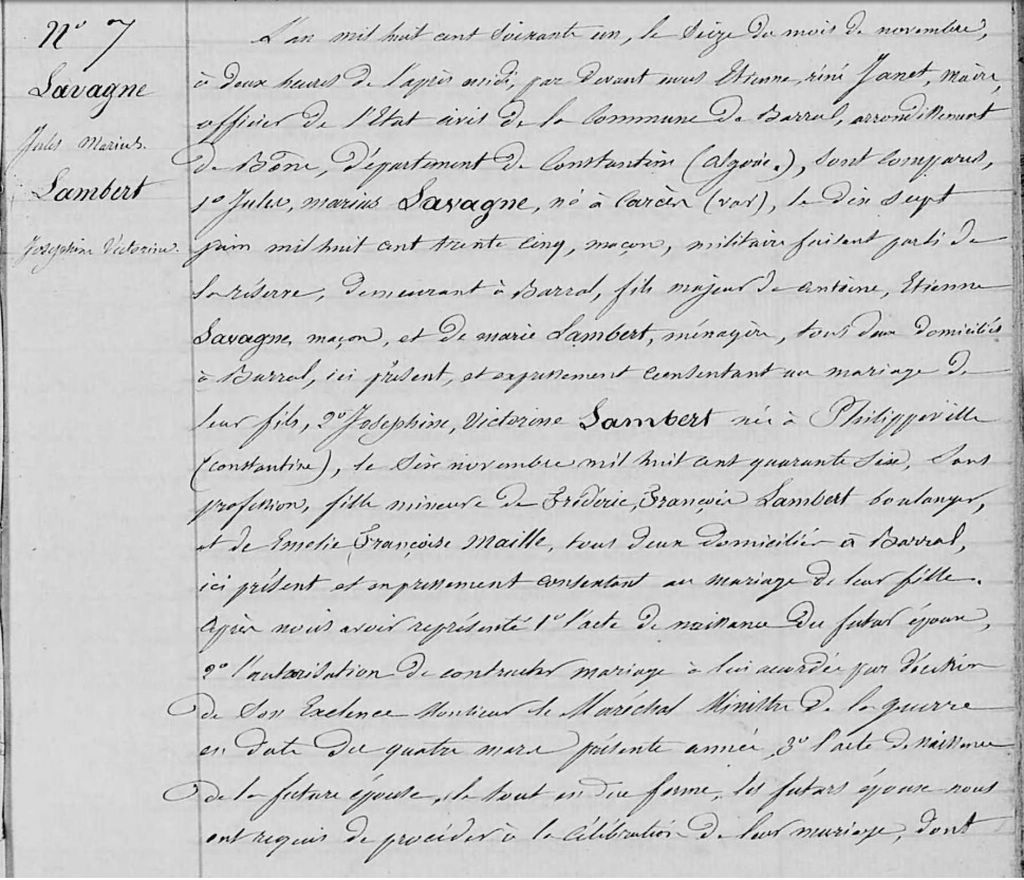 N° 7
Lavagne
Jules Marius.
Lambert
Joséphine Victorine.
L'an mil huit cent soixante un, le seize du mois de novembre,
à deux heures de l'après midi, par devant nous Etienne, réné Janet, maire,
officier de l'Etat civil de la Commune de Barral, arrondissement
de Bône, département de Constantine (algérie.), sont comparus,
1° Jules, marius Lavagne, né à Carcès (var), le dix sept
juin mil huit cent trente cinq, maçon, militaire faisant parti de
la réserve, demeurant à Barral, fils majeur de antoine, Etienne
Lavagne, maçon, et de marie Lambert, ménagère, tous deux domiciliés
à Barral, ici présent, et expressement consentant au mariage de
leur fils, 2° Joséphine, Victorine Lambert née à Philippeville
(constantine), le six novembre mil huit cent quarante six, sans
profession, fille mineure de Frédéric, François Lambert boulanger,
et de Emelie Françoise Maille, tous deux domiciliés à Barral,
ici présent et expressement consentant au mariage de leur fille.
Après nous avoir représenté 1° l'acte de naissance du futur époux,
2° l'autorisation de contracter mariage à lui accordée par décision
de Son Exelence Monsieur le Maréchal Ministre de la guerre
en date du quatre mars présente année, 3° l'acte de naissance
de la future épouse, le tout en due forme, les futurs époux nous
ont requis de procéder à la célébration de leur mariage, dont